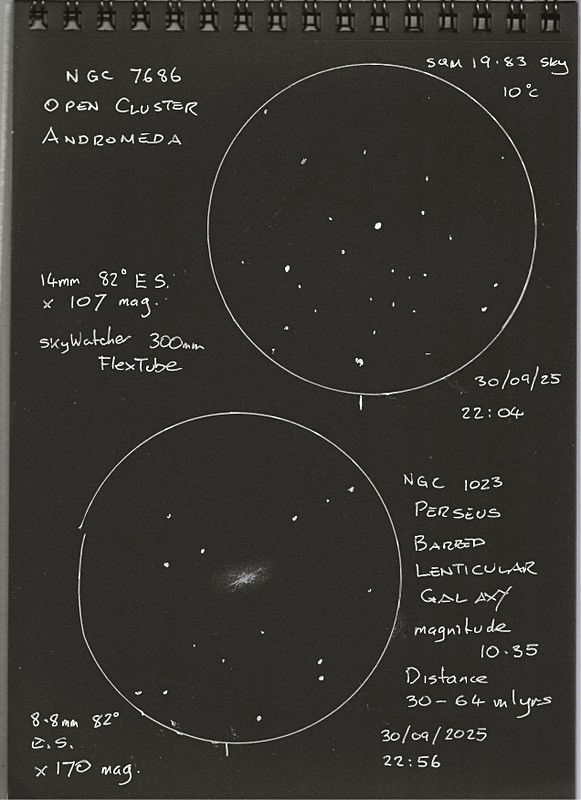 NGC 7686
OPEN CLUSTER
ANDROMEDA
SQM 19.83 sky
10°c
14mm 82° E S.
x 107 mag.
skyWatcher 300mm
FlexTube
30/09/25
22:04
NGC 1023
PERSEUS
BARRED
LENTICULAR
GALAXY
magnitude
10.35
Distance
30-64 mlyrs
30/09/2025
22:56
8.8mm 82°
E.S.
x 170 mag.